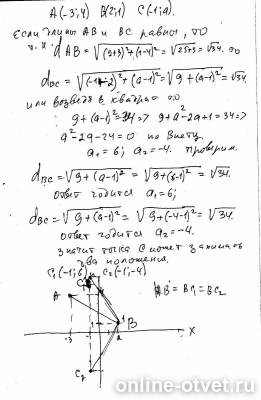 A(-3;4) B(2;1) C(-1;a)
Если длины AB и BC равны, то
т.к. d AB = √(2+3)²+(1-4)² = √25+9 = √34. то
d BC = √(-1-2)²+(a-1)² = √9+(a-1)² = √34
или возведя в квадрат
9+(a-1)² = 34 => 9+a²-2a+1=34 =>
a²-2a-24=0 по Виету
a₁=6; a₂=-4. Проверим.
d BC = √9+(a-1)² = √9+(6-1)² = √34.
ответ годится a₁=6;
d BC = √9+(a-1)² = √9+(-4-1)² = √34.
ответ годится a₂=-4.
значит точка C может занимать
два положения.
C₁(-1;6) и C₂(-1;-4)
AB = BC₁ = BC₂
A
B
-3
-1
2
X
C₂
online-otvet.ru